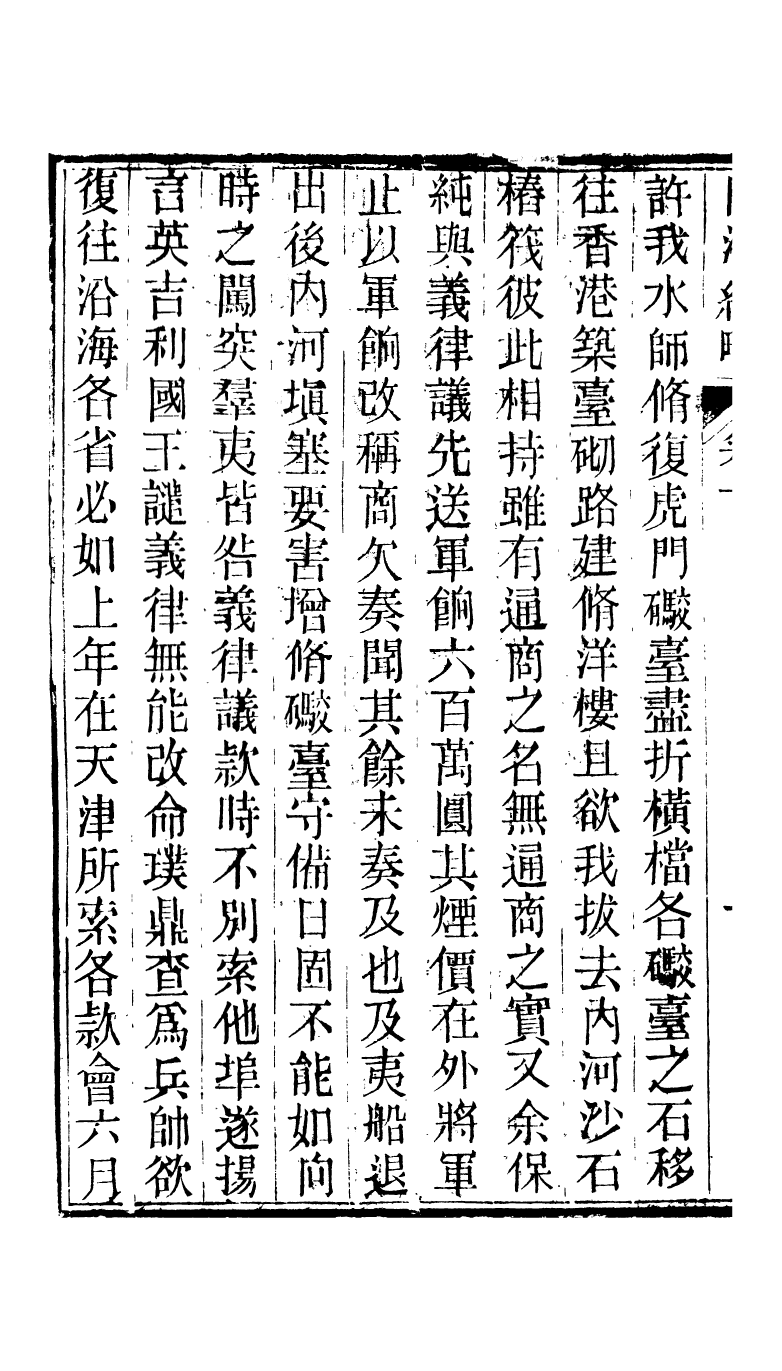 許我水師脩復虎門礮臺盡折橫檔各礮臺之石移
往香港築臺砌路建脩洋樓且欲我拔去內河沙石
樁筏彼此相持雖有通商之名無通商之實又余保
純與義律議先送軍餉六百萬圓其煙價在外將軍
止以軍餉改稱商欠奏聞其餘未奏及也及夷船退
出後內河塡塞要害增脩礮臺守備日固不能如向
時之闖突羣夷皆咎義律議款時不別索他埠遂揚
言英吉利國王譴義律無能改命璞鼎查爲兵帥欲
復往沿海各省必如上年在天津所索各款會六月